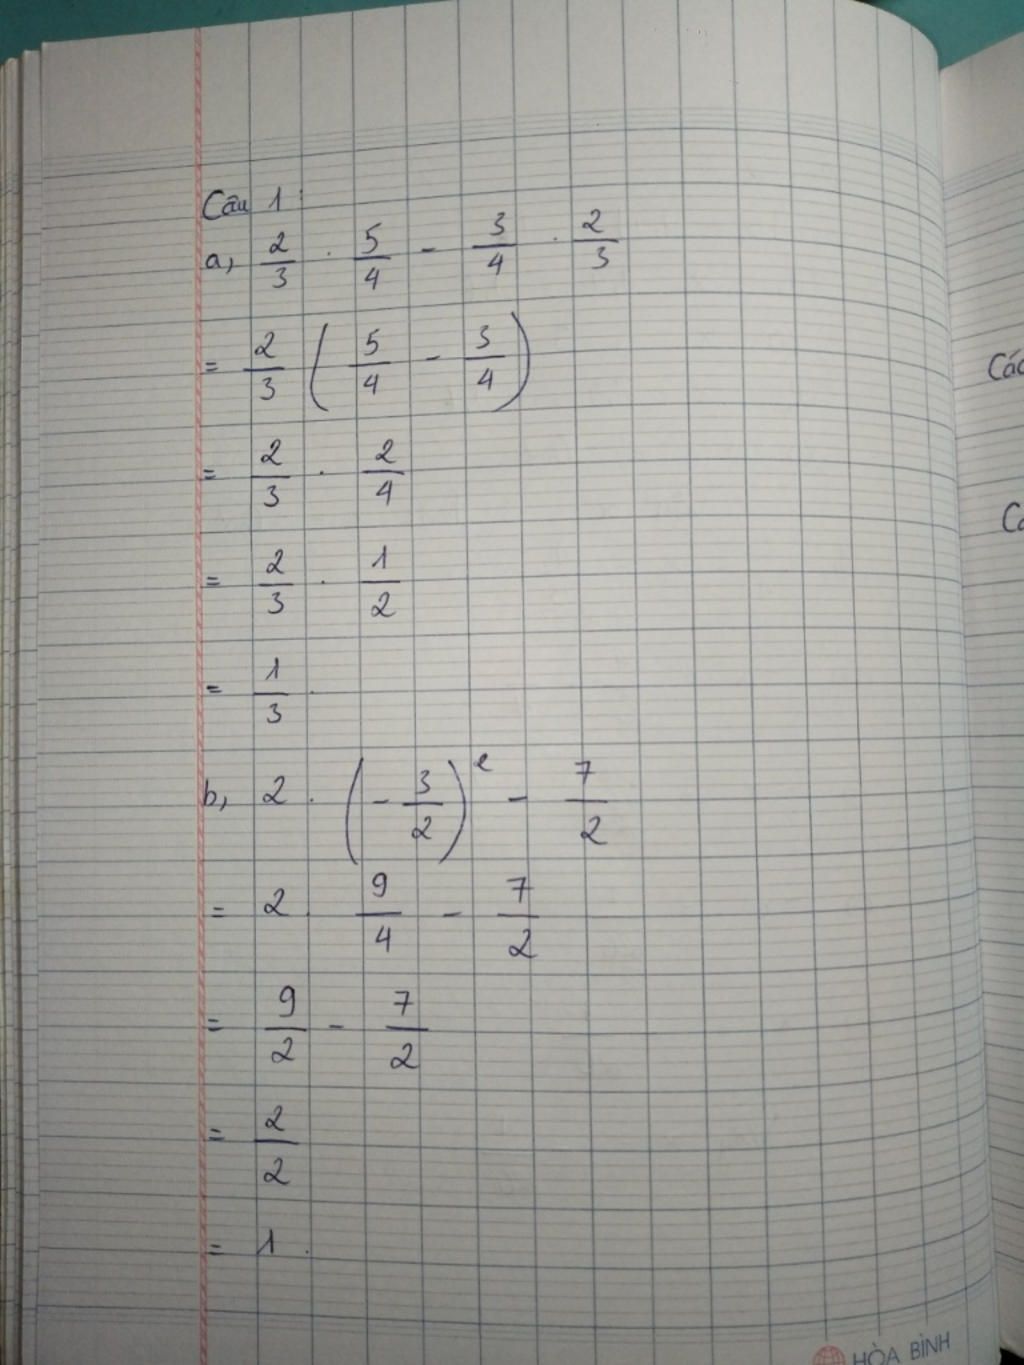 Câu 1:
a, 2/3 . 5/4 - 3/4 . 2/3
= 2/3 ( 5/4 - 3/4 )
= 2/3 . 2/4
= 2/3 . 1/2
= 1/3 .
b, 2 . ( - 3/2 )² - 7/2
= 2 . 9/4 - 7/2
= 9/2 - 7/2
= 2/2
= 1 .
HÒA BÌNH